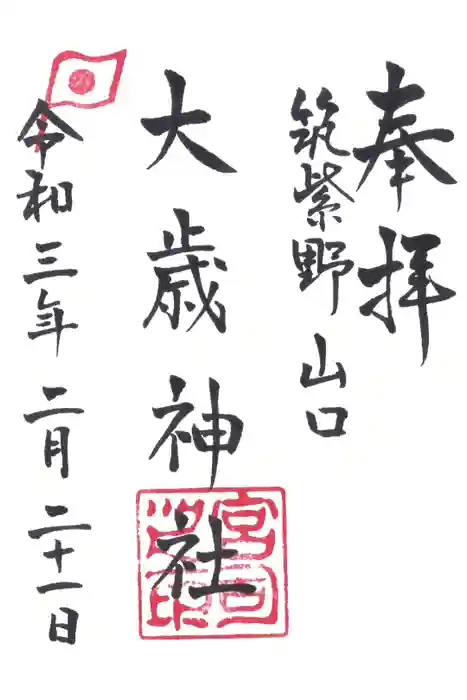 奉拝
筑紫野山口
大歳神社
令和三年二月二十一日
宮司之印